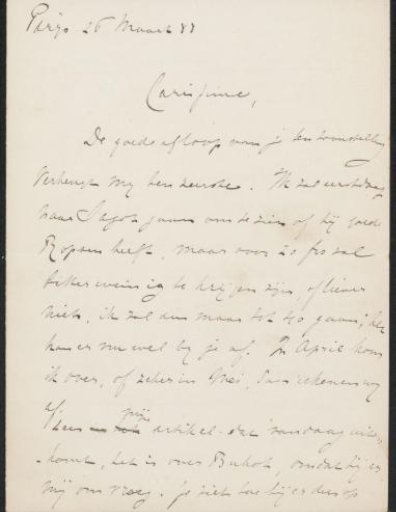 Parijs 26 Maart 88
Carissime,
De goede afloop van je tentoonstelling
verheugt my ten zeerste. Ik zal
naar Sagot gaan om te zien of hij goede
Ropsen heeft, maar voor 20 frs zal
zeker weinig te krijgen zijn, of liever
niets, ik zal dus maar tot 40 gaan;
kan er nu wel by je af. In April kom
ik over, of zeker in Mei, dan rekenen wy
af.
Lees mijn artikel dat vandaag uit-
komt, het is over Buhot, omdat hij er
mij om vroeg. Je ziet hoe hij er dus op